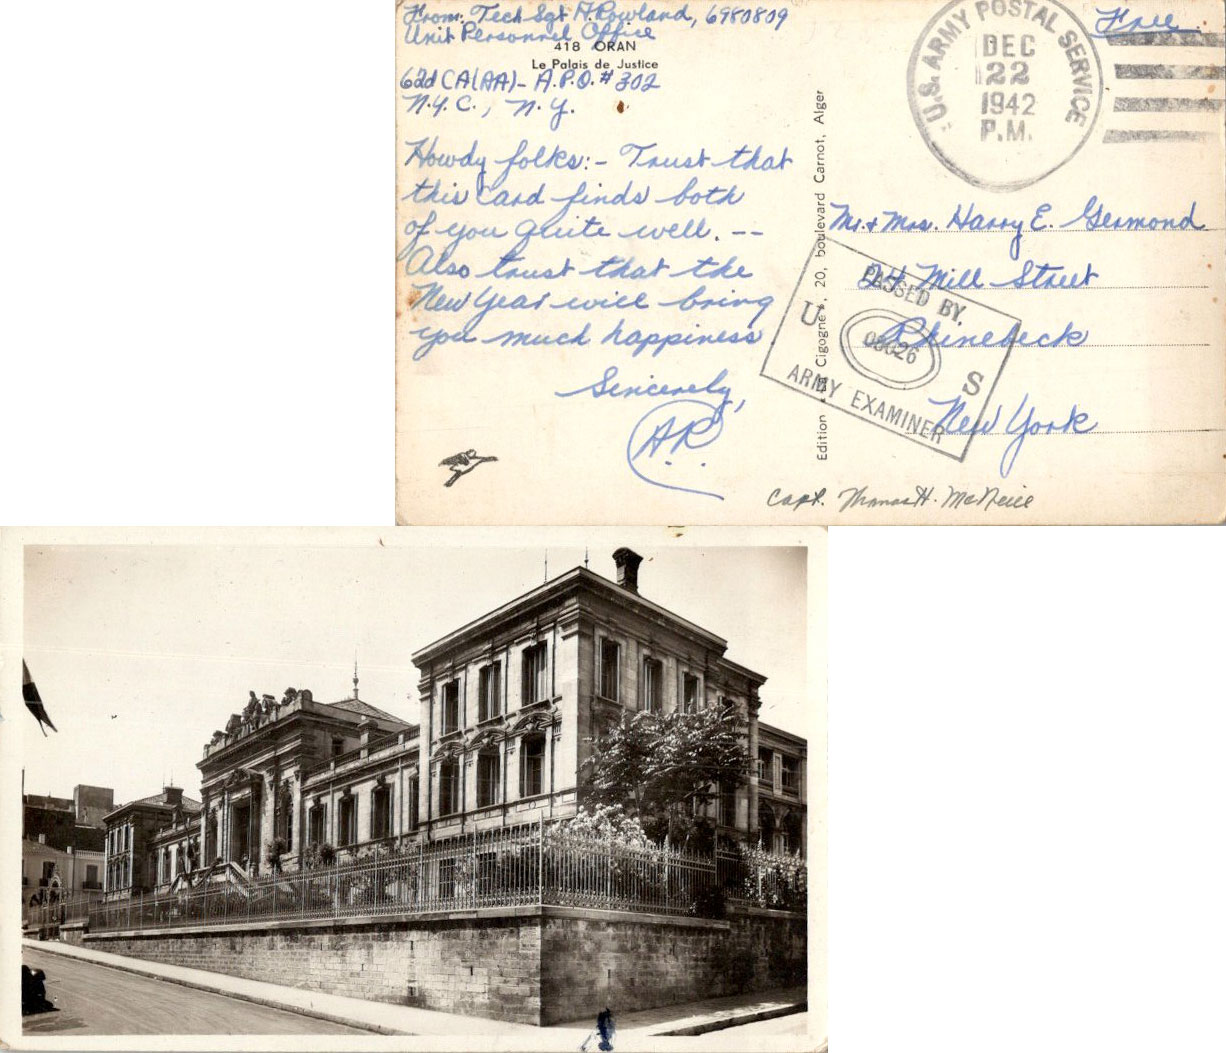 From: Tech Sgt A. Rowland, 6980809
Unit Personnel Office
418 ORAN
Le Palais de Justice
62d CA(AA)- A.P.O. # 302
N.Y.C., N.Y.
Howdy folks:- Trust that
this card finds both
of you quite well. --
Also trust that the
New Year will bring
you much happiness
Sincerely,
A.R.
Edition Cigogne, 20, boulevard Carnot, Alger
U.S. ARMY POSTAL SERVICE
DEC
22
1942
P.M.
Free
Mr. & Mrs. Harry E. Germond
24 Mill Street
Rhinebeck
New York
PASSED BY
U S
ARMY EXAMINER
Capt. Thomas H. McNeill